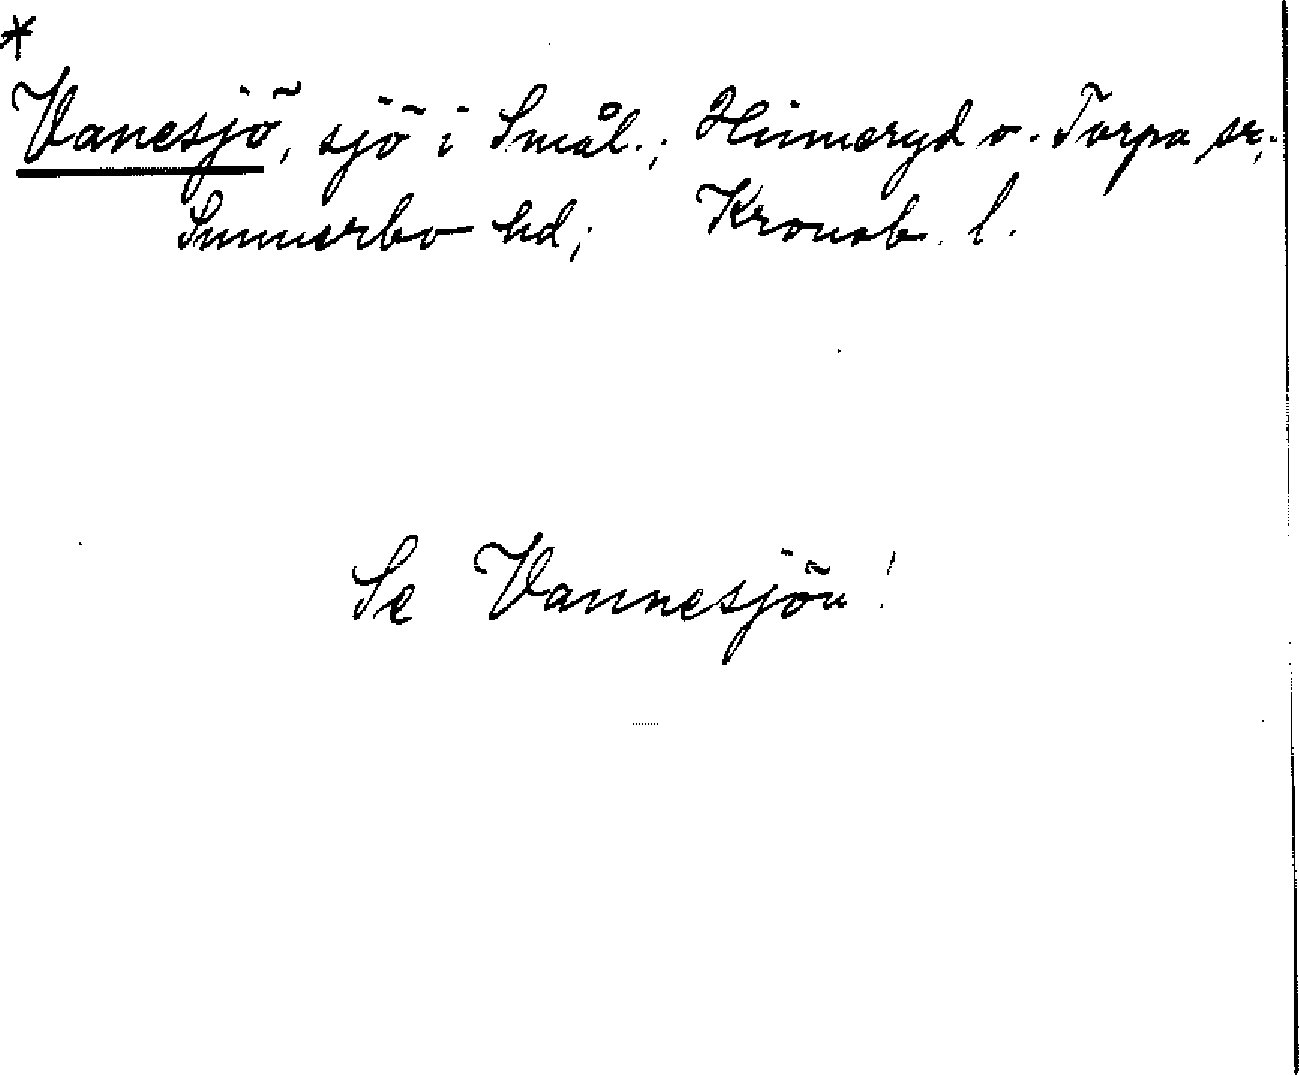 *
Vanesjö, sjö i Smål.; Hinneryd o. Torpa sr;
Sunnerbo hd; Kronob. l.
Se Vannesjön!